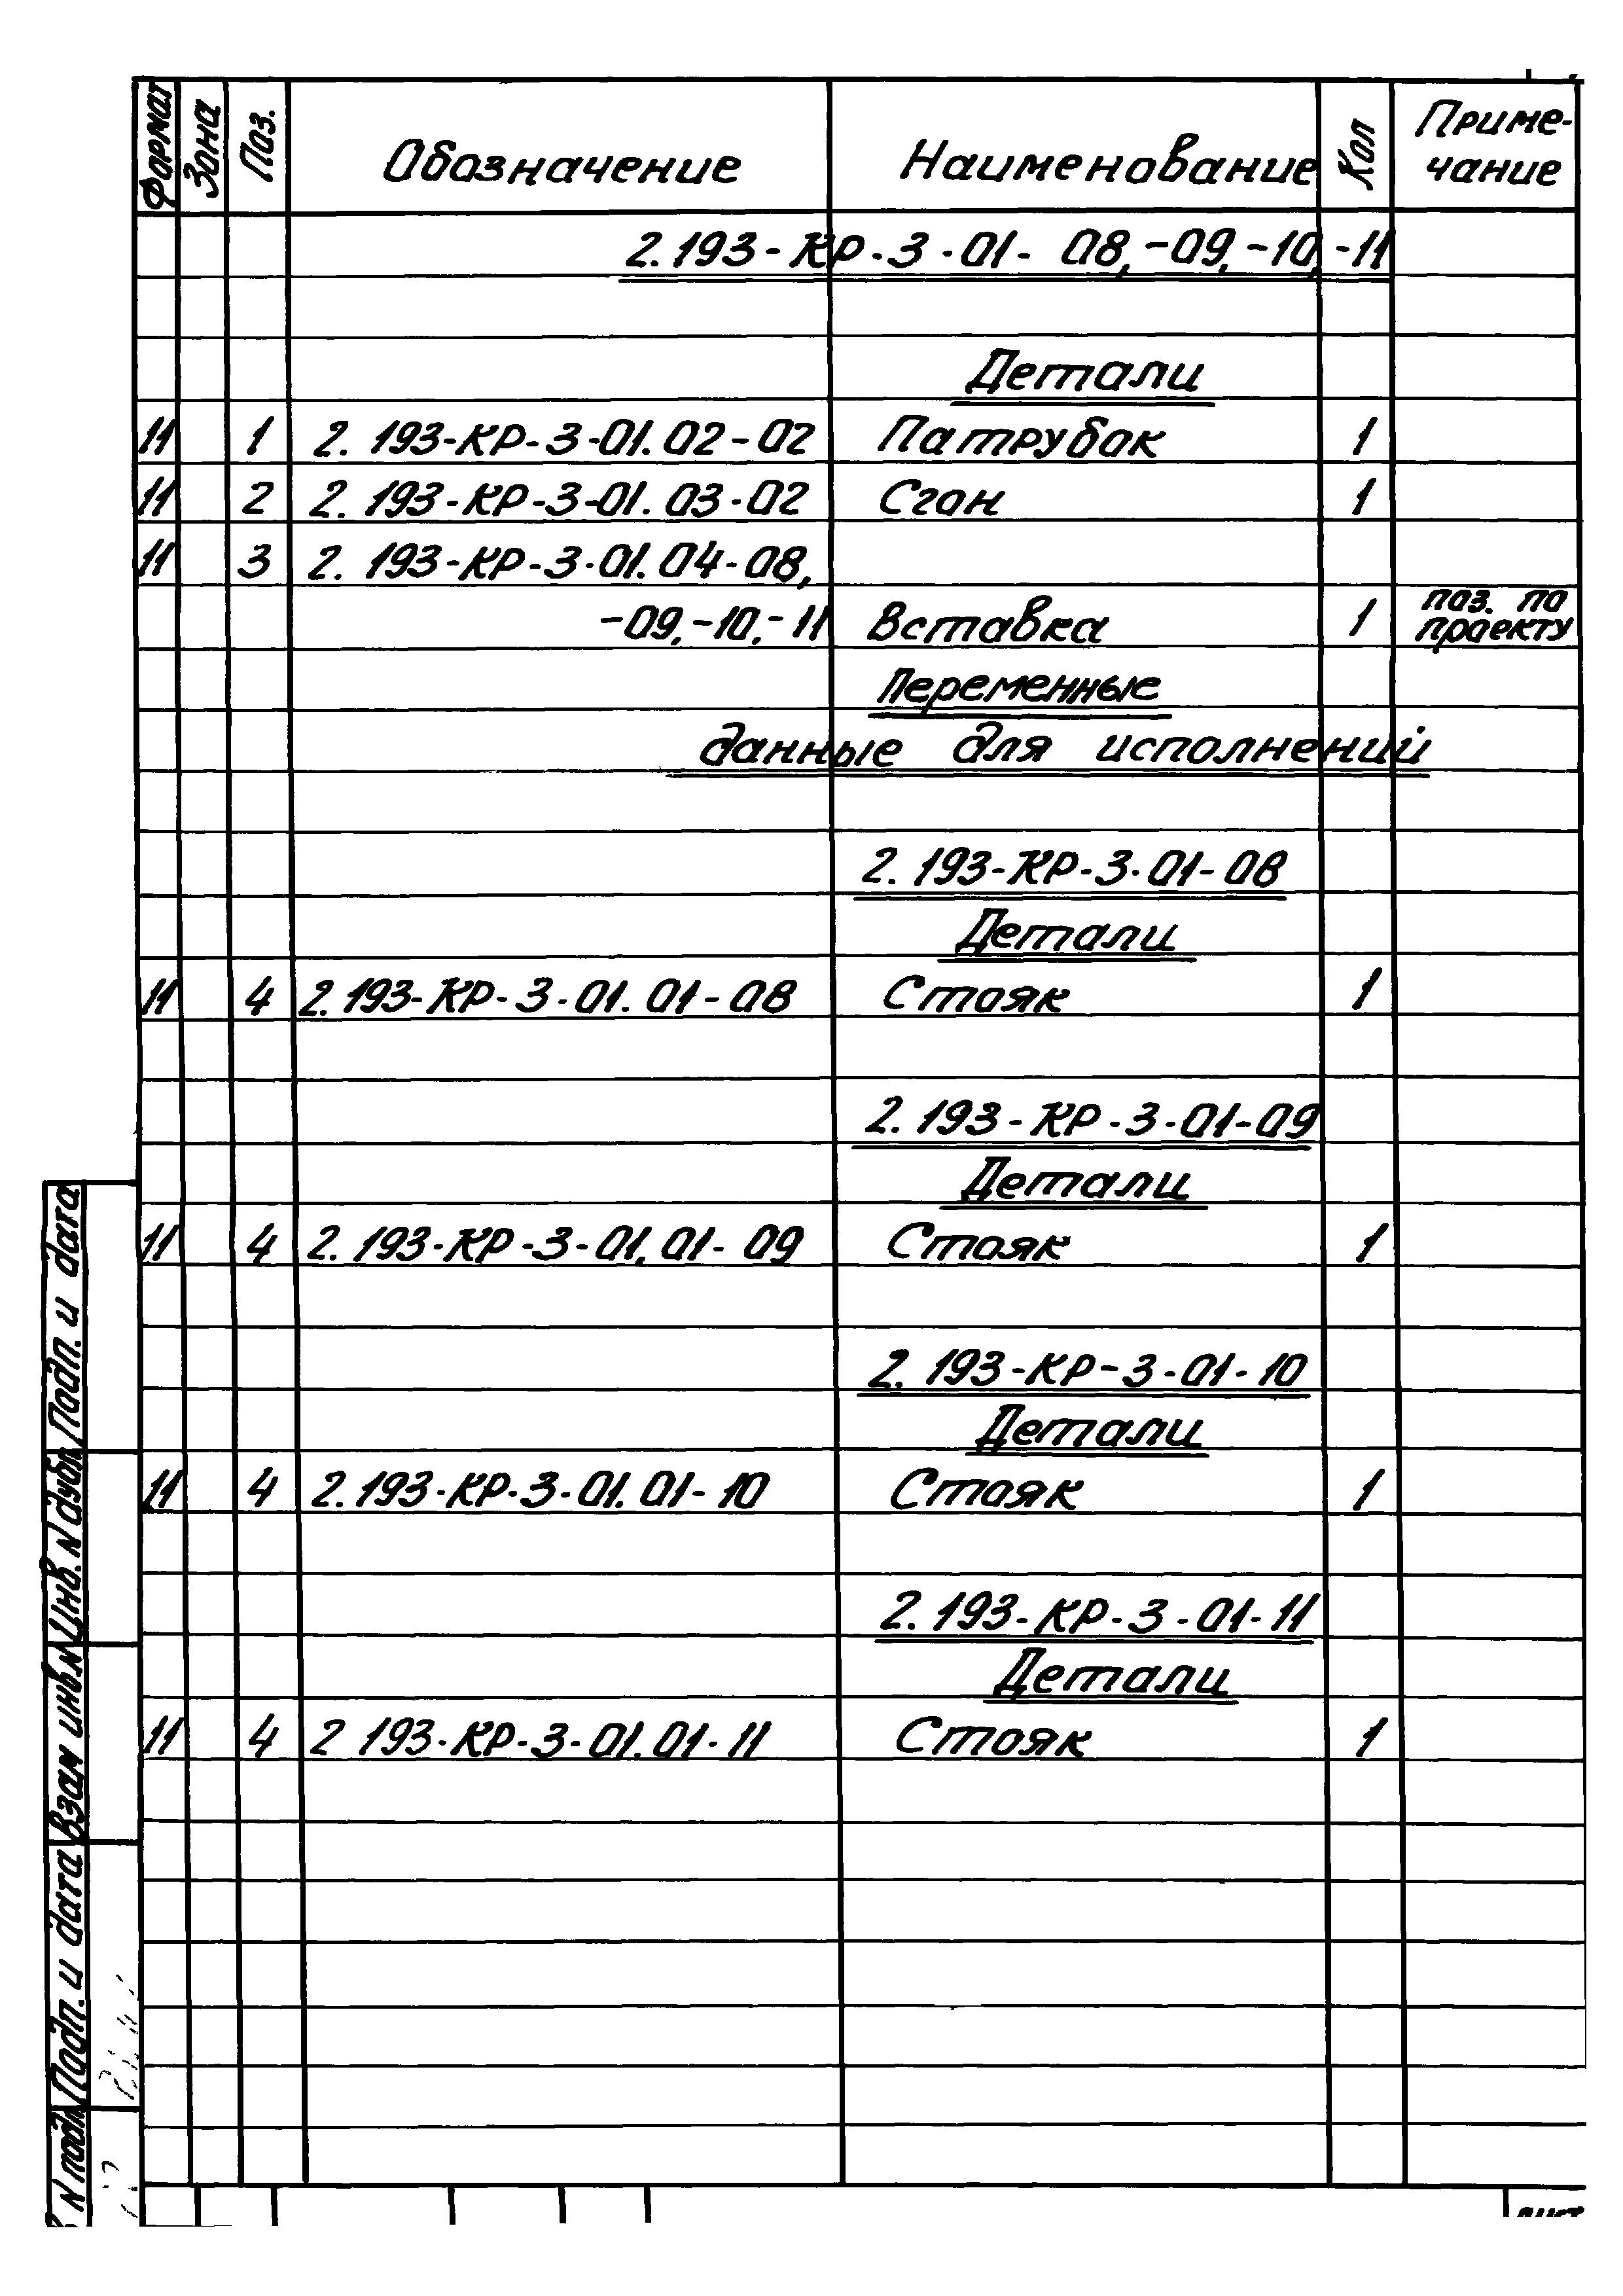 Формат Зона Поз. Обозначение Наименование Кол Приме-
чание
2.193-КР-3-01-08,-09,-10,-11
Детали
11 1 2.193-КР-3-01.02-02 Патрубок 1
11 2 2.193-КР-3-01.03-02 Сгон 1
11 3 2.193-КР-3-01.04-08,
-09,-10,-11 Вставка 1 поз. по
проекту
Переменные
данные для исполнений
2.193-КР-3-01-08
Детали
11 4 2.193-КР-3-01.01-08 Стояк 1
2.193-КР-3-01-09
Детали
11 4 2.193-КР-3-01.01-09 Стояк 1
2.193-КР-3-01-10
Детали
11 4 2.193-КР-3-01.01-10 Стояк 1
2.193-КР-3-01-11
Детали
11 4 2 193-КР-3-01.01-11 Стояк 1
Подп. и дата
Инв. N дубл
Взам инв.N
Подп. и дата
N подл